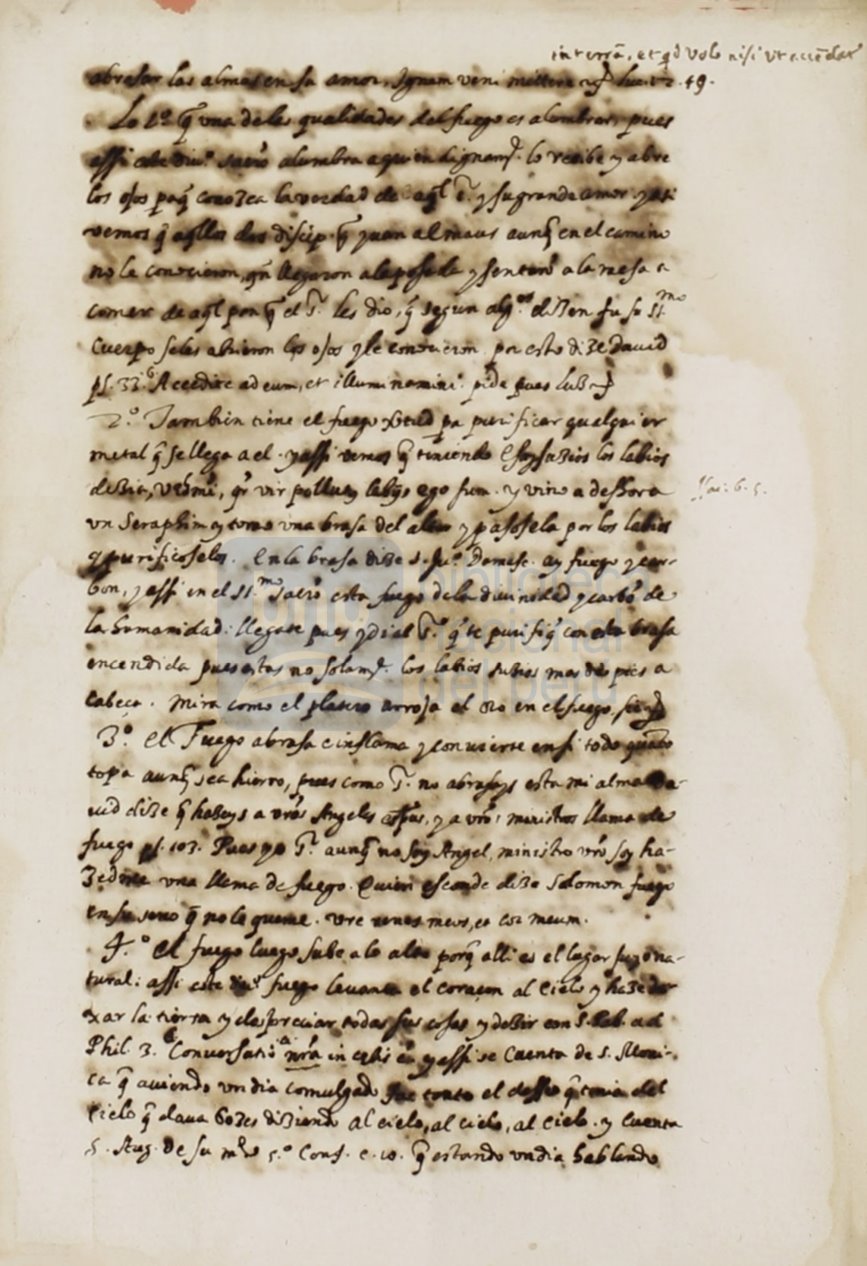 in terrā, et qd volo nisi vt accēdat
abrasar las almas en su amor, Ignem veni mittere luc. 12. 49.
Lo 1º. q̃ vna de las qualidades del fuego es alumbrar, pues
assi este diuº. sacrº alumbra a quien dignamte. lo recibe y abre
los ojos paq̃ conozca la verdad de aql Sr. y su grande amor y assi
vemos q̃ aqllos dos discip. q̃ yuan al maus aunq̃ en el camino
no le conocieron, qn llegaron a la posada y sentarō a la mesa a
comer de aql pan q̃ el Sr. les dio, q̃ segun algos. dizen fue su SSmo
Cuerpo se les abrieron los ojos y le conocieron por esto dize Dauid
ps. 33. 6 Accedite ad eum, et illuminamini. pide pues luz
2º. Tambien tiene el fuego virtud pa purificar qualquier
metal q̃ se llega a el. y assi vemos q̃ teniendo Esaysazios los labios
dezia, Vę mi, qr vir pollutus labijs ego sum. y vino a deshora
Isai: 6. 5.
vn Seraphin y tomo vna brasa del altar y pasosela por los labios
y purificoselos. En la brasa dize S. Juº. Damasc. ay fuego y car-
bon, y assi en el SSmo sacrº esta fuego de la diuinidad y carbō de
la humanidad. llegate pues y di al Sr. q̃ te purifiq̃ con esta brasa
encendida pues estas no solamte. los labios suzios mas de pies a
cabeça. Mira como el platero arroja el oro en el fuego,
3º. el Fuego abrasa e inflama y conuierte en si todo quāto
topa aunq̃ sea hierro, pues como Sr. no abrasays esta mi alma Da-
uid dize q̃ hazeys a vrōs Angeles spūs, y a vrōs ministros llama de
fuego ps. 103. Pues yo Sr. aunq̃ no soy Angel, ministro vrō soy ha-
zedme vna llama de fuego. Quien esconde dize Salomon fuego
en su seno q̃ no le queme. vre renes meos, et cor meum.
4º. el fuego luego sube a lo alto porq̃ alli es el lugar suyo na-
tural: assi este diuº. fuego leuanta el coraçon al Cielo y haze de-
xar la tierra y despreciar todas sus cosas y dezir con S. Pab. ad
Phil. 3. Conuersatio nrā in cęlis ē, y assi se Cuenta de S. Moni-
ca q̃ auiendo vn dia comulgado fue tanto el desseo q̃ tenia del
Cielo q̃ daua bozes diziendo al cielo, al cielo, al Cielo. y Cuenta
S. Aug. de su me 9º. Conf. c. 10. q̃ estando vn dia hablando
biblioteca
nacional
del perú